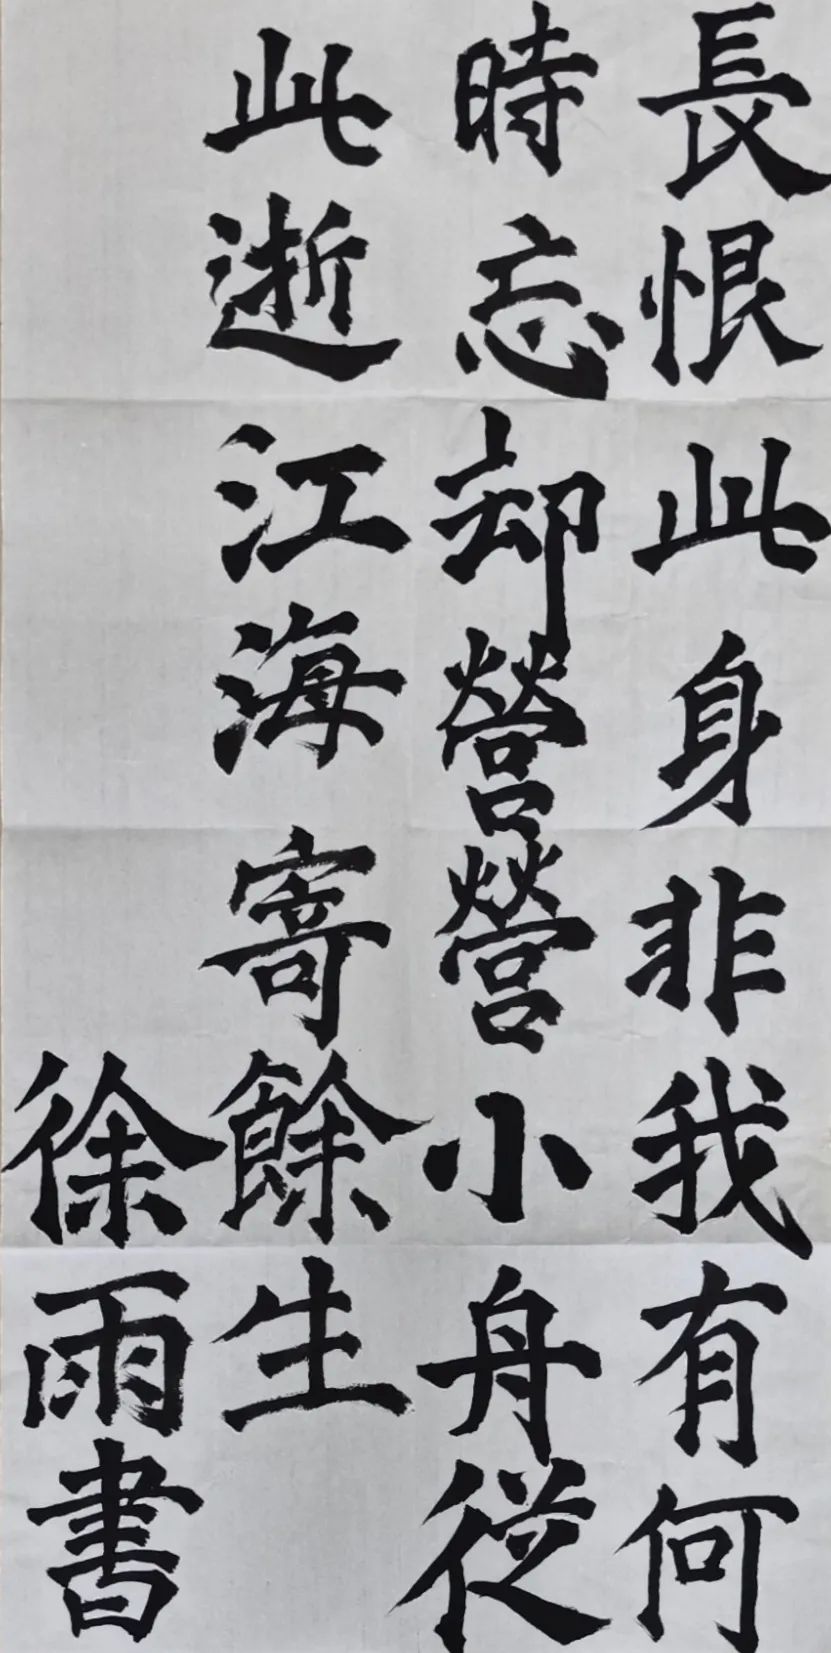 長恨此身非我有何
時忘却營營小舟從
此逝江海寄餘生
徐雨書